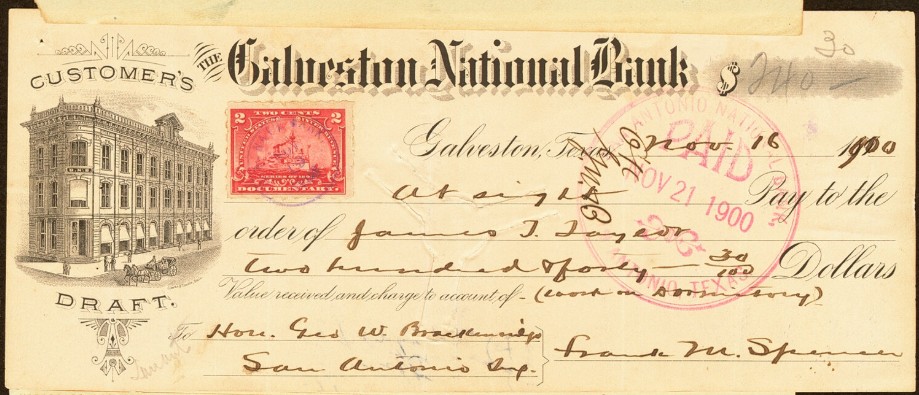 CUSTOMER'S
DRAFT.
THE Galveston National Bank
$ 240 30
TWO CENTS
2 2
SERIES OF 1898
DOCUMENTARY.
Galveston, Texas Nov. 16 1900
At sight Pay to the
order of James T. Taylor
two hundred & forty 30/100 Dollars
Value received, and charge to account of - (work on Dormitory)
To Hon. Geo W. Brackenridge
San Antonio Tex.
Frank M. Spencer
SAN ANTONIO NATIONAL BANK
PAID
NOV 21 1900
SAN ANTONIO, TEXAS